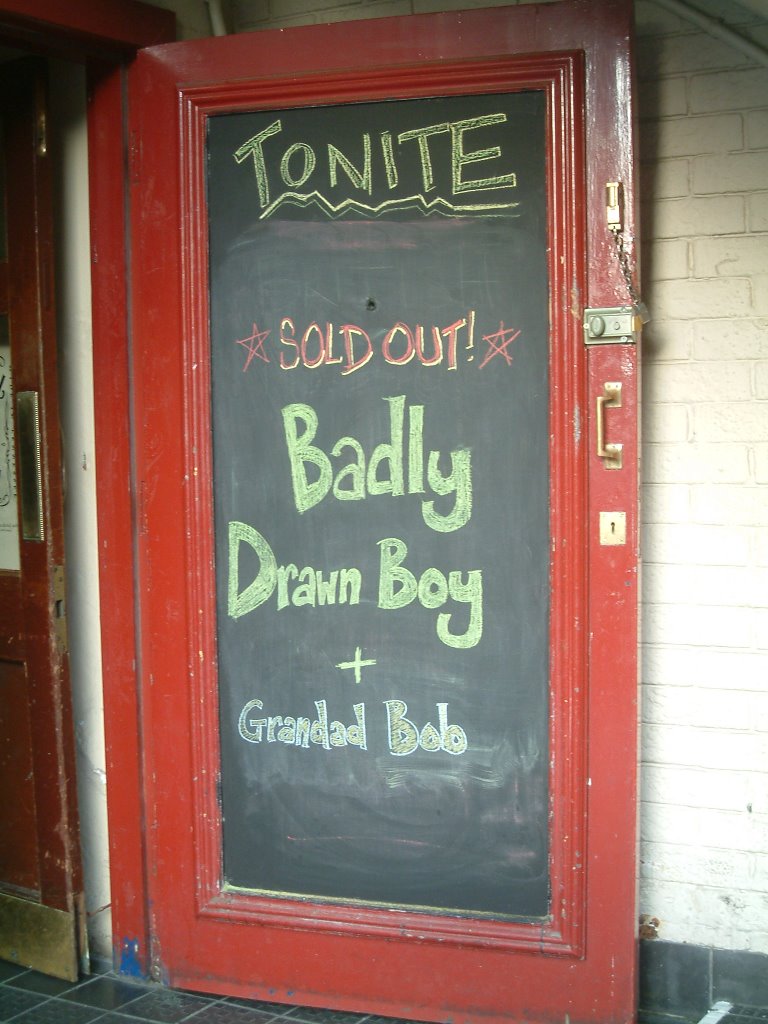 TONITE
SOLD OUT!
Badly
Drawn Boy
+
Grandad Bob